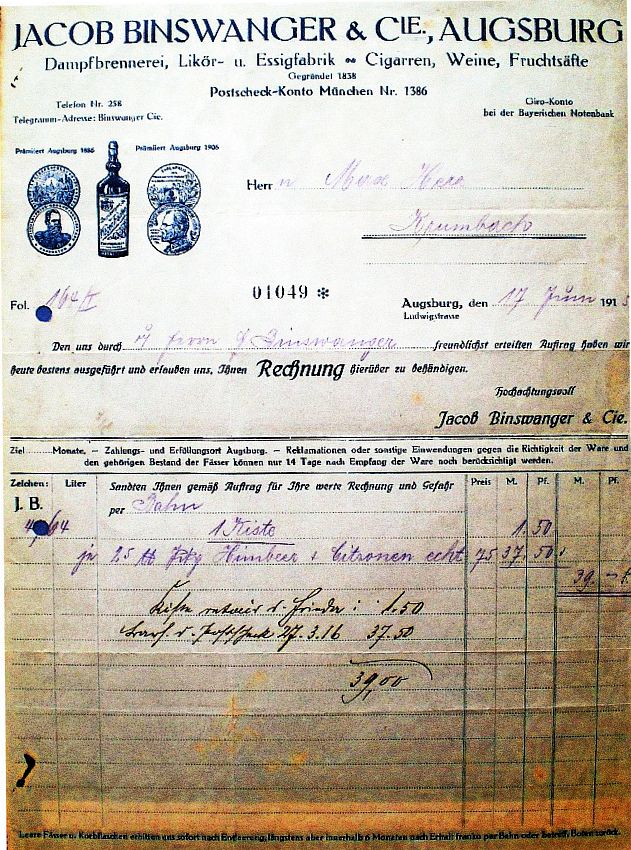 JACOB BINSWANGER & CIE., AUGSBURG
Dampfbrennerei, Likör- u. Essigfabrik ∾ Cigarren, Weine, Fruchtsäfte
Gegründet 1838
Postscheck-Konto München Nr. 1386
Telefon Nr. 258
Telegramm-Adresse: Binswanger Cie.
Giro-Konto
bei der Bayerischen Notenbank
Prämiiert Augsburg 1886
Prämiiert Augsburg 1906
Herrn Max Herz
Krumbach
Fol. 164/I
01049 ✻
Augsburg, den 17 Juni 191
Ludwigstrasse
Den uns durch Herrn Binswanger freundlichst erteilten Auftrag haben wir
heute bestens ausgeführt und erlauben uns, Ihnen Rechnung hierüber zu behändigen.
Hochachtungsvoll
Jacob Binswanger & Cie.
Ziel ........ Monate. — Zahlungs- und Erfüllungsort Augsburg. — Reklamationen oder sonstige Einwendungen gegen die Richtigkeit der Ware und
den gehörigen Bestand der Fässer können nur 14 Tage nach Empfang der Ware noch berücksichtigt werden.
Zeichen: Liter Sandten Ihnen gemäß Auftrag für Ihre werte Rechnung und Gefahr Preis M. Pf. M. Pf.
J. B. per Bahn
64 1 Kiste 1.50
je 25 Himbeer + Citronen echt 75 37.50
39.—
Kiste retour d. Frieda : 1.50
d. Postscheck 27.3.16 37.50
39,00
Leere Fässer u. Korbflaschen erbitten uns sofort nach Entleerung, längstens aber innerhalb 6 Monaten nach Erhalt franko per Bahn oder betreff. Boten zurück.